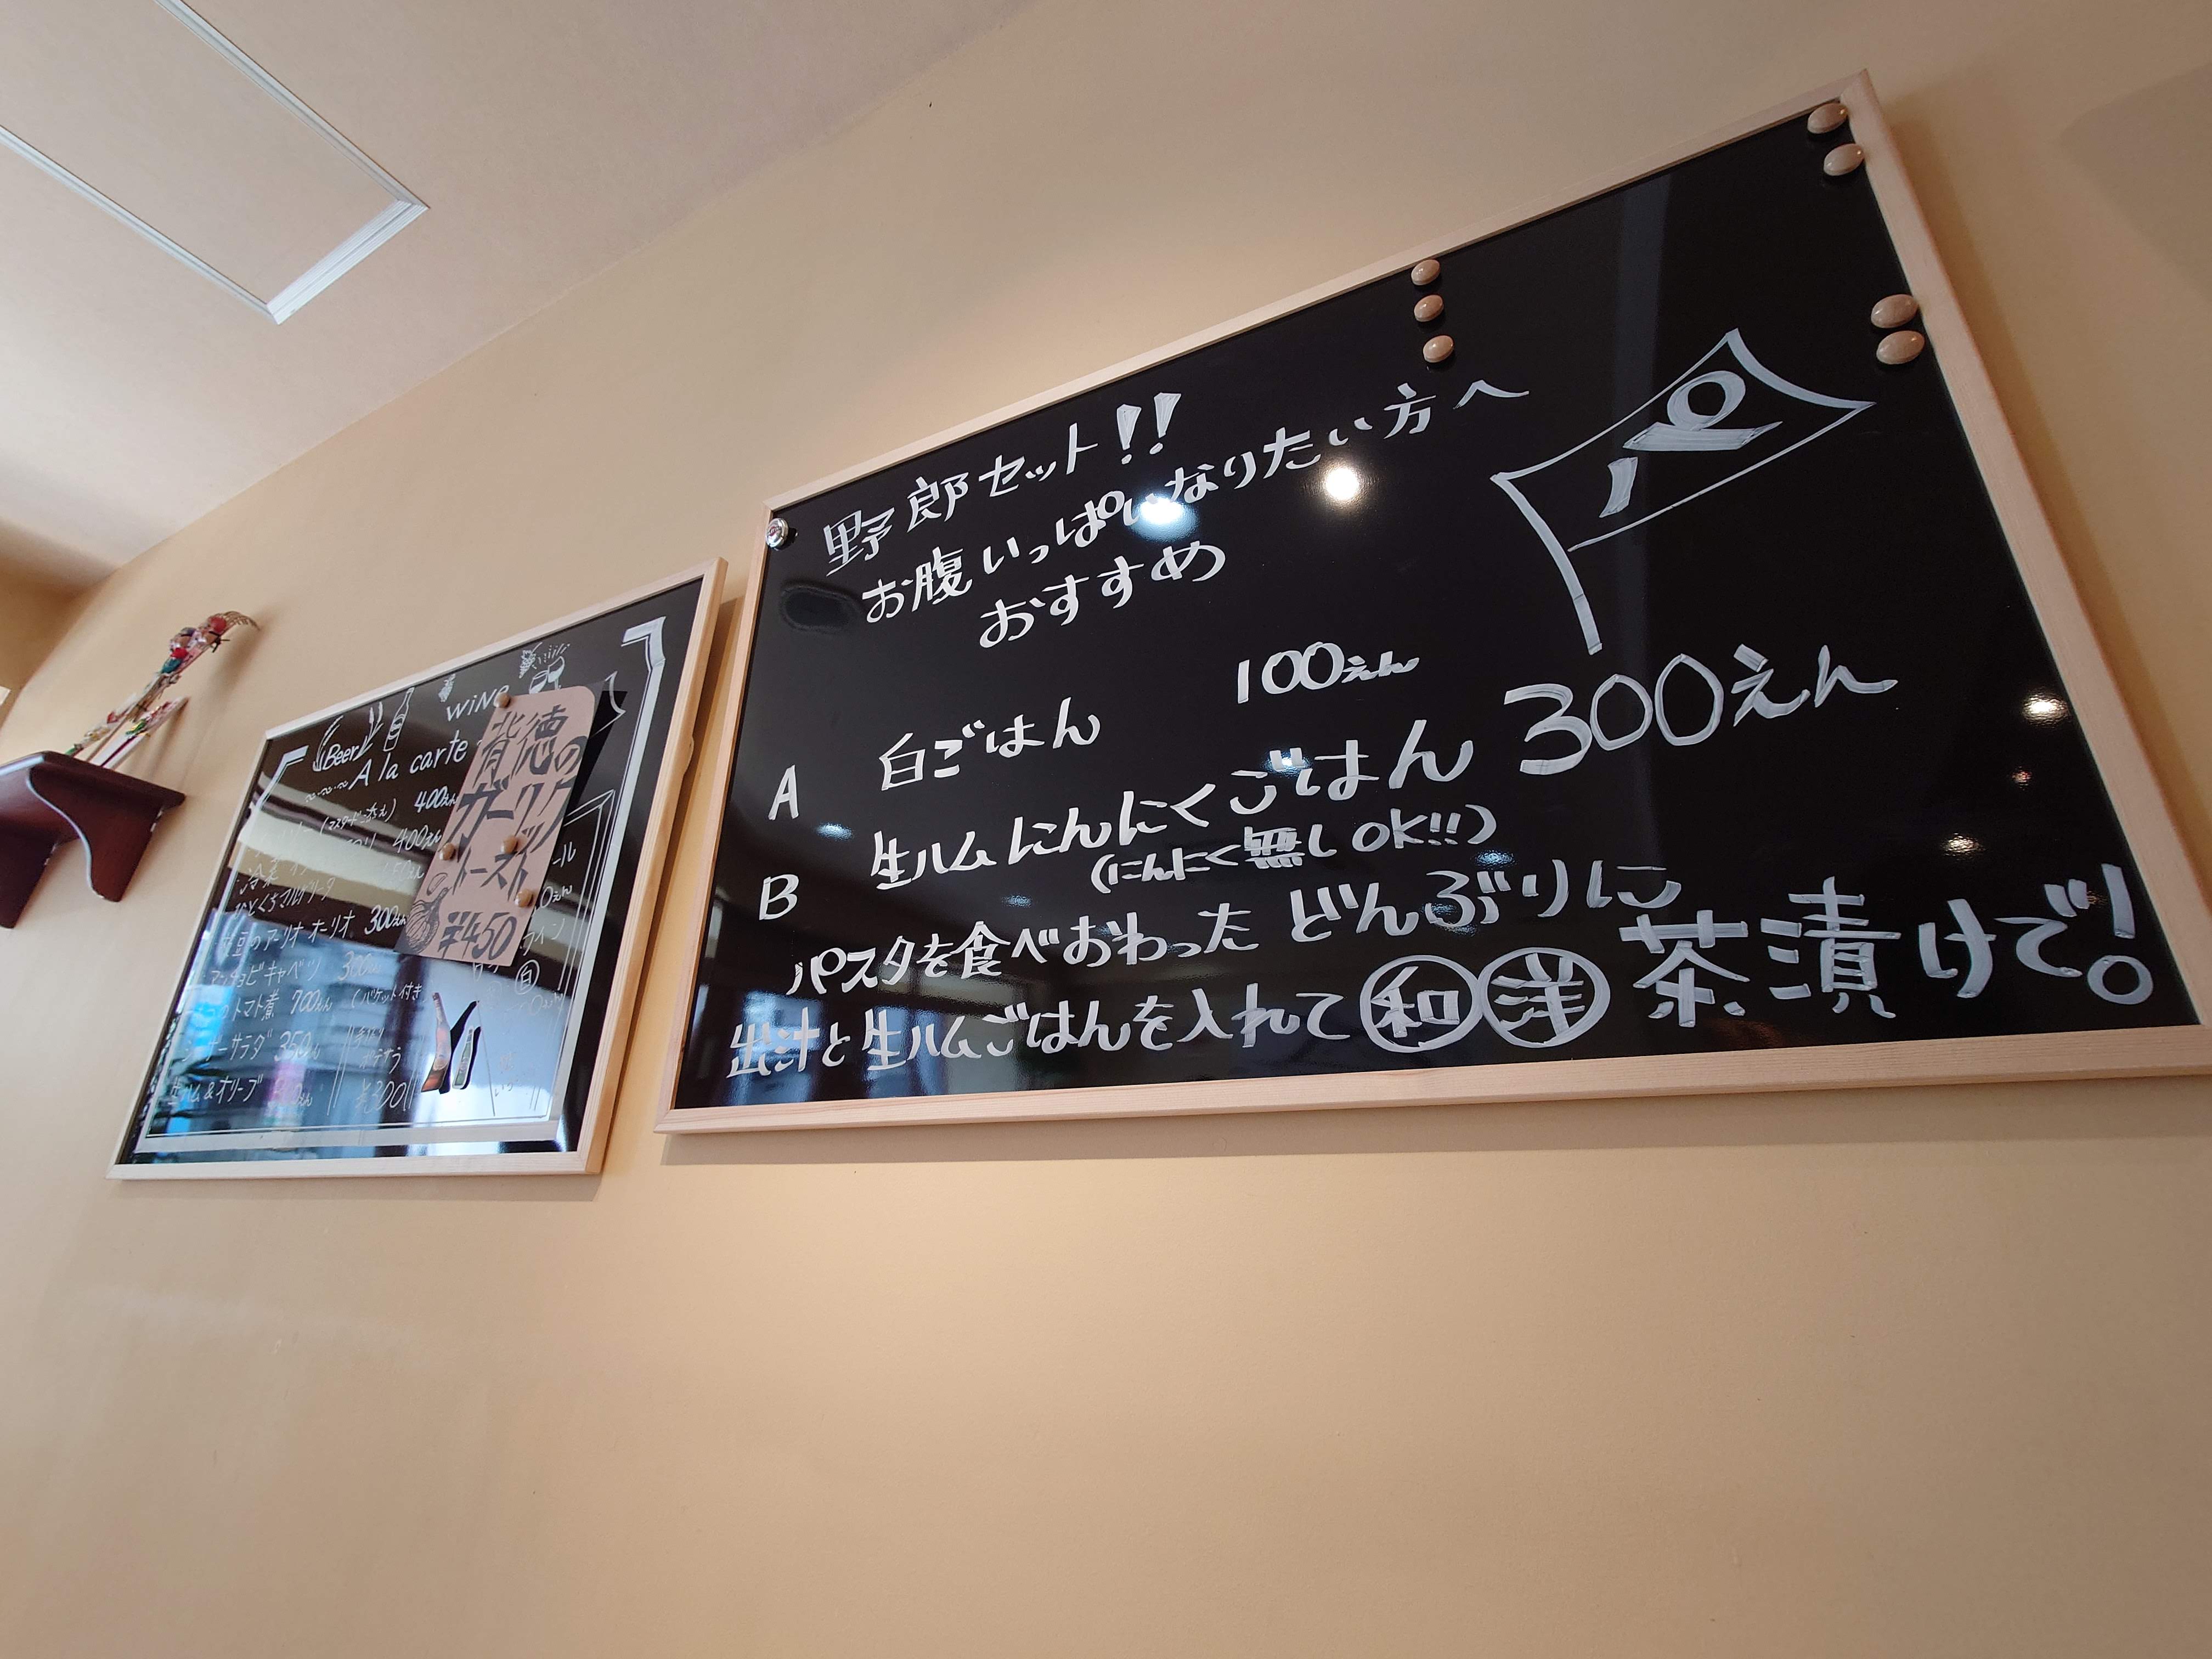 Beer
wine
A la carte
(マスタードニ方え) 400えん
400えん
ひとくちマルゲリータ
豆のアーリオ オーリオ 300えん
アンチョビキャベツ
のトマト煮 700えん (バケット付き
シーザーサラダ 350えん
生ハム&オリーブ
ポテサラ
¥300
背徳の
ガーリック
トースト
¥450
野郎セット!!
お腹いっぱいなりたい方へ
おすすめ
A 白ごはん 100えん
B 生ハムにんにくごはん 300えん
(にんにく無しOK!!)
パスタを食べおわった どんぶりに
出汁と生ハムごはんを入れて 和 洋 茶漬けで!